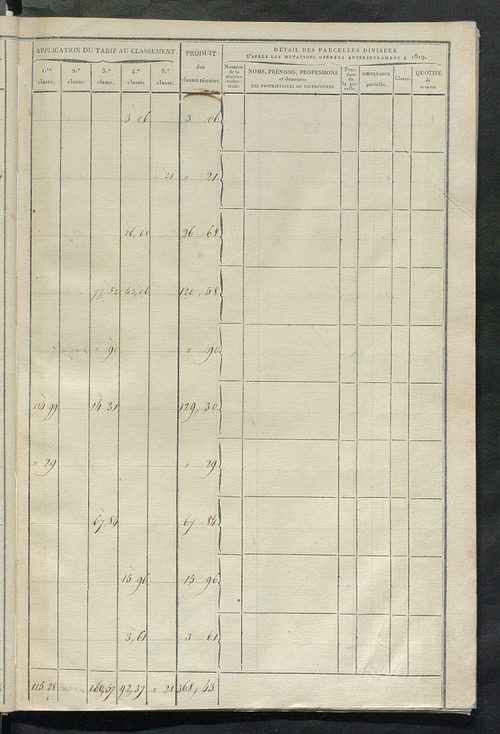 APPLICATION DU TARIF AU CLASSEMENT. PRODUIT des classes réunies.
1.re classe. 2.e classe. 3.e classe. 4.e classe. 5.e classe.
DÉTAIL DES PARCELLES DIVISÉES
D'APRÈS LES MUTATIONS OPÉRÉES ANTÉRIEUREMENT A 1819.
Numéros de la matrice cadastrale.
NOMS, PRÉNOMS, PROFESSIONS
et demeures
DES PROPRIÉTAIRES OU USUFRUITIERS.
Fraction de la parcelle.
CONTENANCE partielle.
Classes
QUOTITÉ de revenu.
3 06 3 06
21 " 21
26,68 26 68
77,32 43,06 120,38
" 90 " 90
114 99 14 31 129,30
" 29 " 29
67 84 67 84
15 96 15 96
3,61 3 61
115 28 160,37 92,37 " 21 368,23